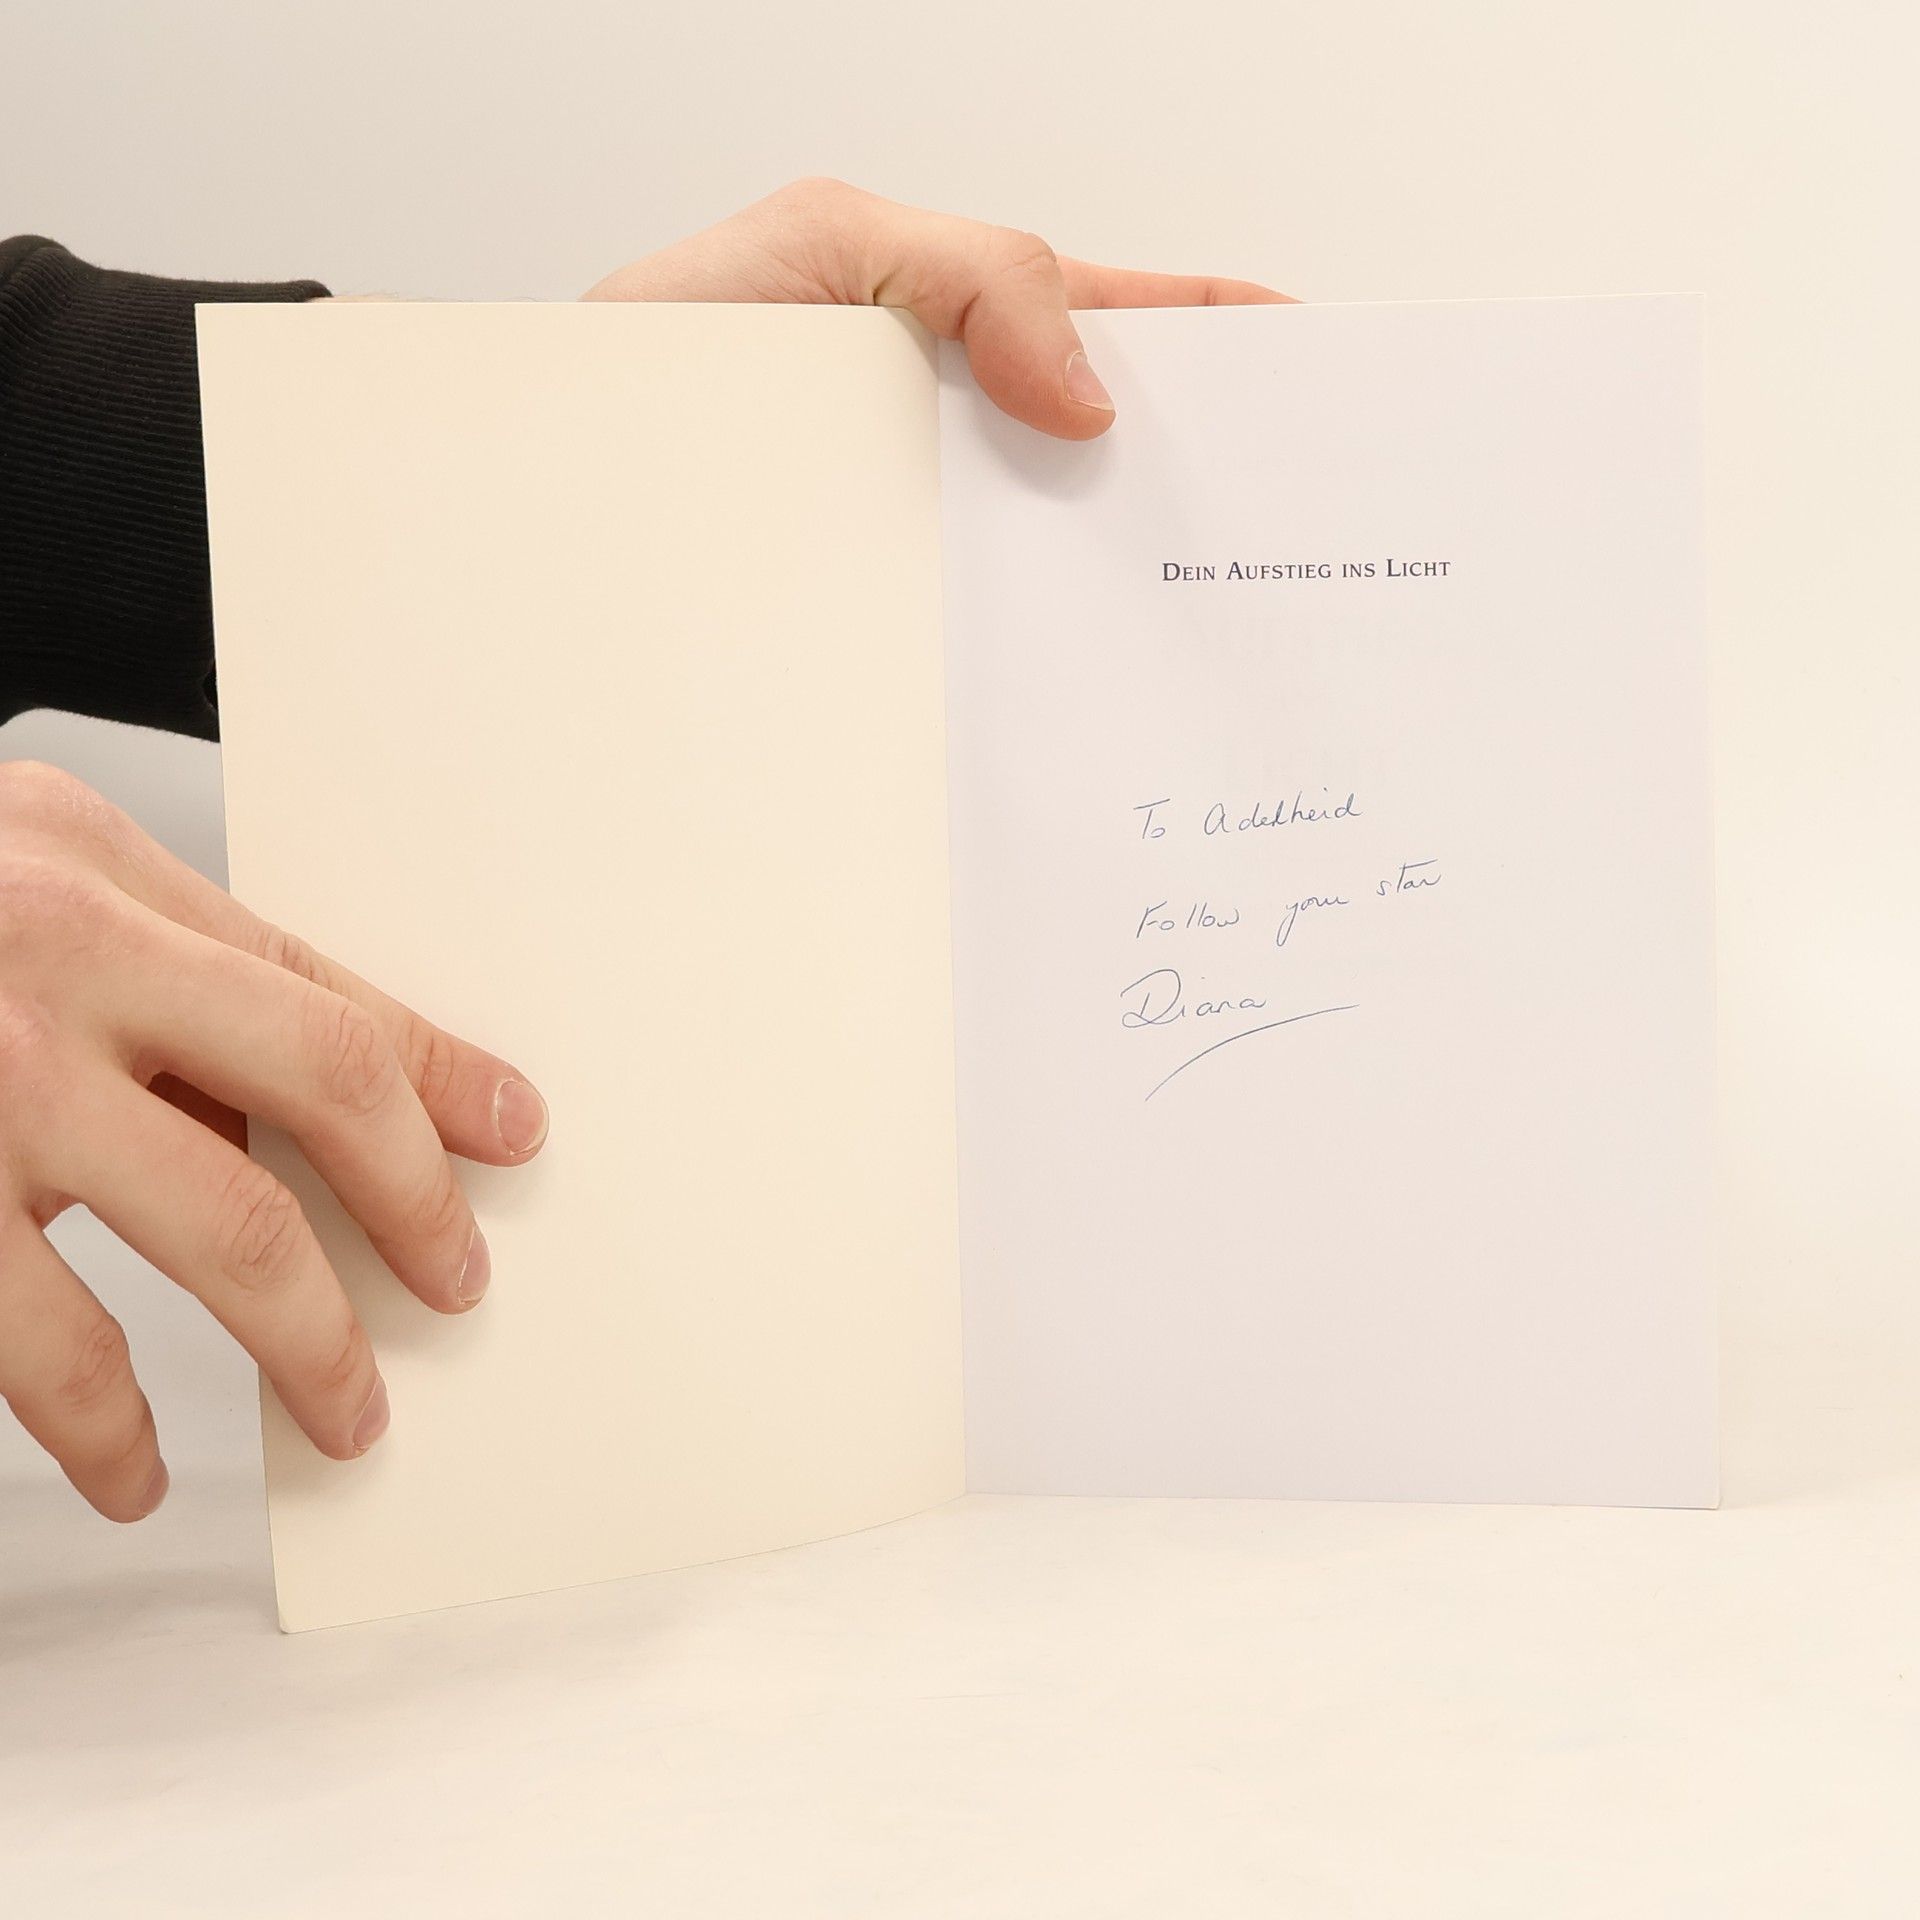 DEIN AUFSTIEG INS LICHT
To Adelheid
Follow your star
Diana